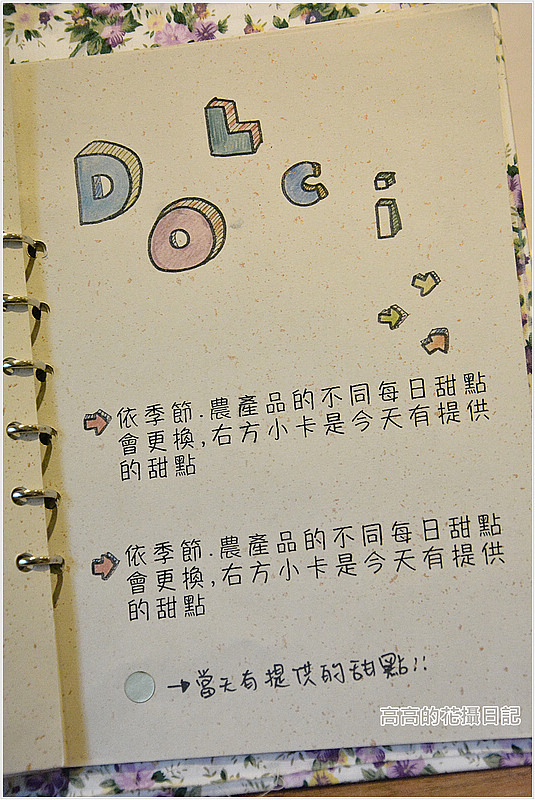 DOLCi
依季節.農產品的不同每日甜點
會更換,右方小卡是今天有提供
的甜點
依季節.農產品的不同每日甜點
會更換,右方小卡是今天有提供
的甜點
→當天有提供的甜點!!
高高的花攝日記